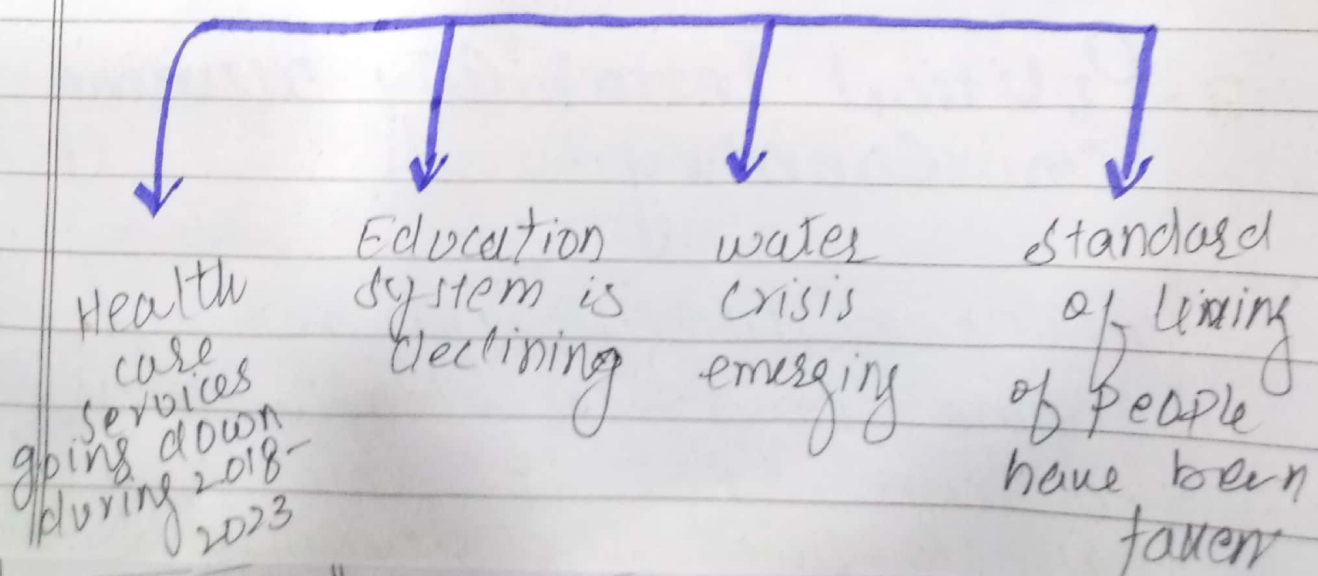 Health
care
services
going down
during 2018-
2023
Education
system is
declining
water
crisis
emerging
standard
of living
of people
have been